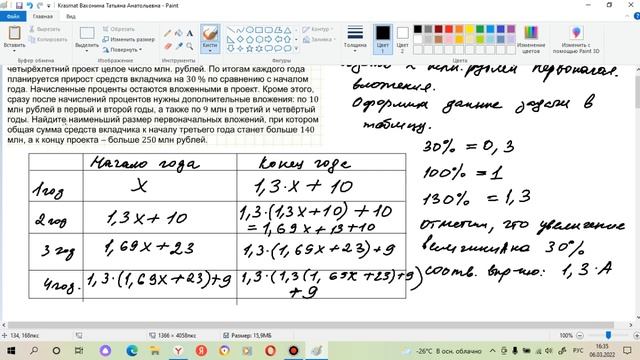 Krasmat Вахонина Татьяна Анатольевна - Paint
Файл
Главная
Вид
Вставить
Буфер обмена
Выделить
Изменить размер
Повернуть
Изображение
Инструменты
Кисти
Фигуры
Контур
Заливка
Толщина
Цвет 1
Цвет 2
Цвета
Изменение цветов
Изменить с помощью Paint 3D
четырёхлетний проект целое число млн. рублей. По итогам каждого года
планируется прирост средств вкладчика на 30 % по сравнению с началом
года. Начисленные проценты остаются вложенными в проект. Кроме этого,
сразу после начислений процентов нужны дополнительные вложения: по 10
млн рублей в первый и второй годы, а также по 9 млн в третий и четвёртый
годы. Найдите наименьший размер первоначальных вложений, при котором
общая сумма средств вкладчика к началу третьего года станет больше 140
млн, а к концу проекта – больше 250 млн рублей.
млн. рублей первонач.
вложения.
Оформим данные задачи в
таблицу.
30% = 0,3
100% = 1
130% = 1,3
отметим, что увеличение
величины А на 30%
соотв. выр-ю: 1,3·А
Начало года
Конец года
1 год
x
1,3·x + 10
2 год
1,3x + 10
1,3·(1,3x+10) + 10
= 1,69x + 13 + 10
3 год
1,69x + 23
1,3·(1,69x+23)+9
4 год.
1,3·(1,69x+23)+9
1,3·(1,3(1,69x+23)+9)
+9
134, 168пкс
1366 × 4058пкс
Размер: 15,9МБ
100%
-26°C В осн. облачно
РУС
16:35
06.03.2022